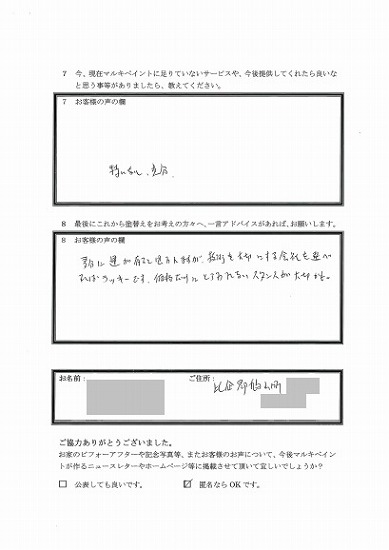 7 今、現在マルキペイントに足りていないサービスや、今後提供してくれたら良いな
と思う事等がありましたら、教えてください。
7 お客様の声の欄
特になし、
8 最後にこれから塗替えをお考えの方々へ、一言アドバイスがあれば、お願いします。
8 お客様の声の欄
に運が有ると思いますが、技術を大切にする会社を選べ
ればラッキーです、価格だけにとらわれないスタンスが大切かも。
お名前: ご住所: 比企郡
ご協力ありがとうございました。
お家のビフォーアフターや記念写真等、またお客様のお声について、今後マルキペイン
トが作るニュースレターやホームページ等に掲載させて頂いて宜しいでしょうか?
公表しても良いです。 匿名ならOKです。